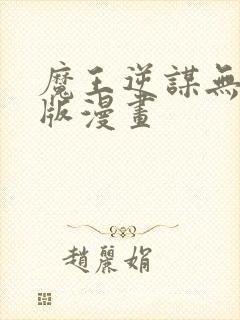 魔王逆謀無
版漫畫
趙麗娟